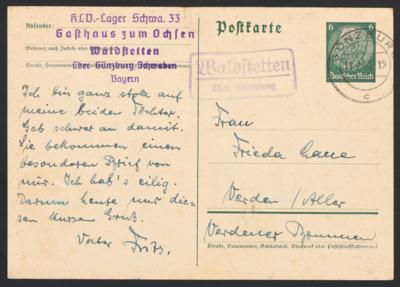 Absender:
K.L.V.-Lager Schwa. 33
Gasthaus zum Ochsen
Waldstetten
über Günzburg Schwaben
Bayern
Ich bin ganz stolz auf
meine beiden Töchter.
Geb schwer an damit.
Sie bekommen einen
besonderen Brief von
mir. Ich hab's eilig.
Darum heute nur die-
sen kurzen Gruß.
Vater Fritz.
Postkarte
6 6
Deutsches Reich
GÜNZBURG
c
Waldstetten
über Günzburg
Frau
Frieda
Verden/Aller
Verdener Brunnen
Straße, Hausnummer, Gebäudeteil, Stockwerk oder Postschließfachnummer